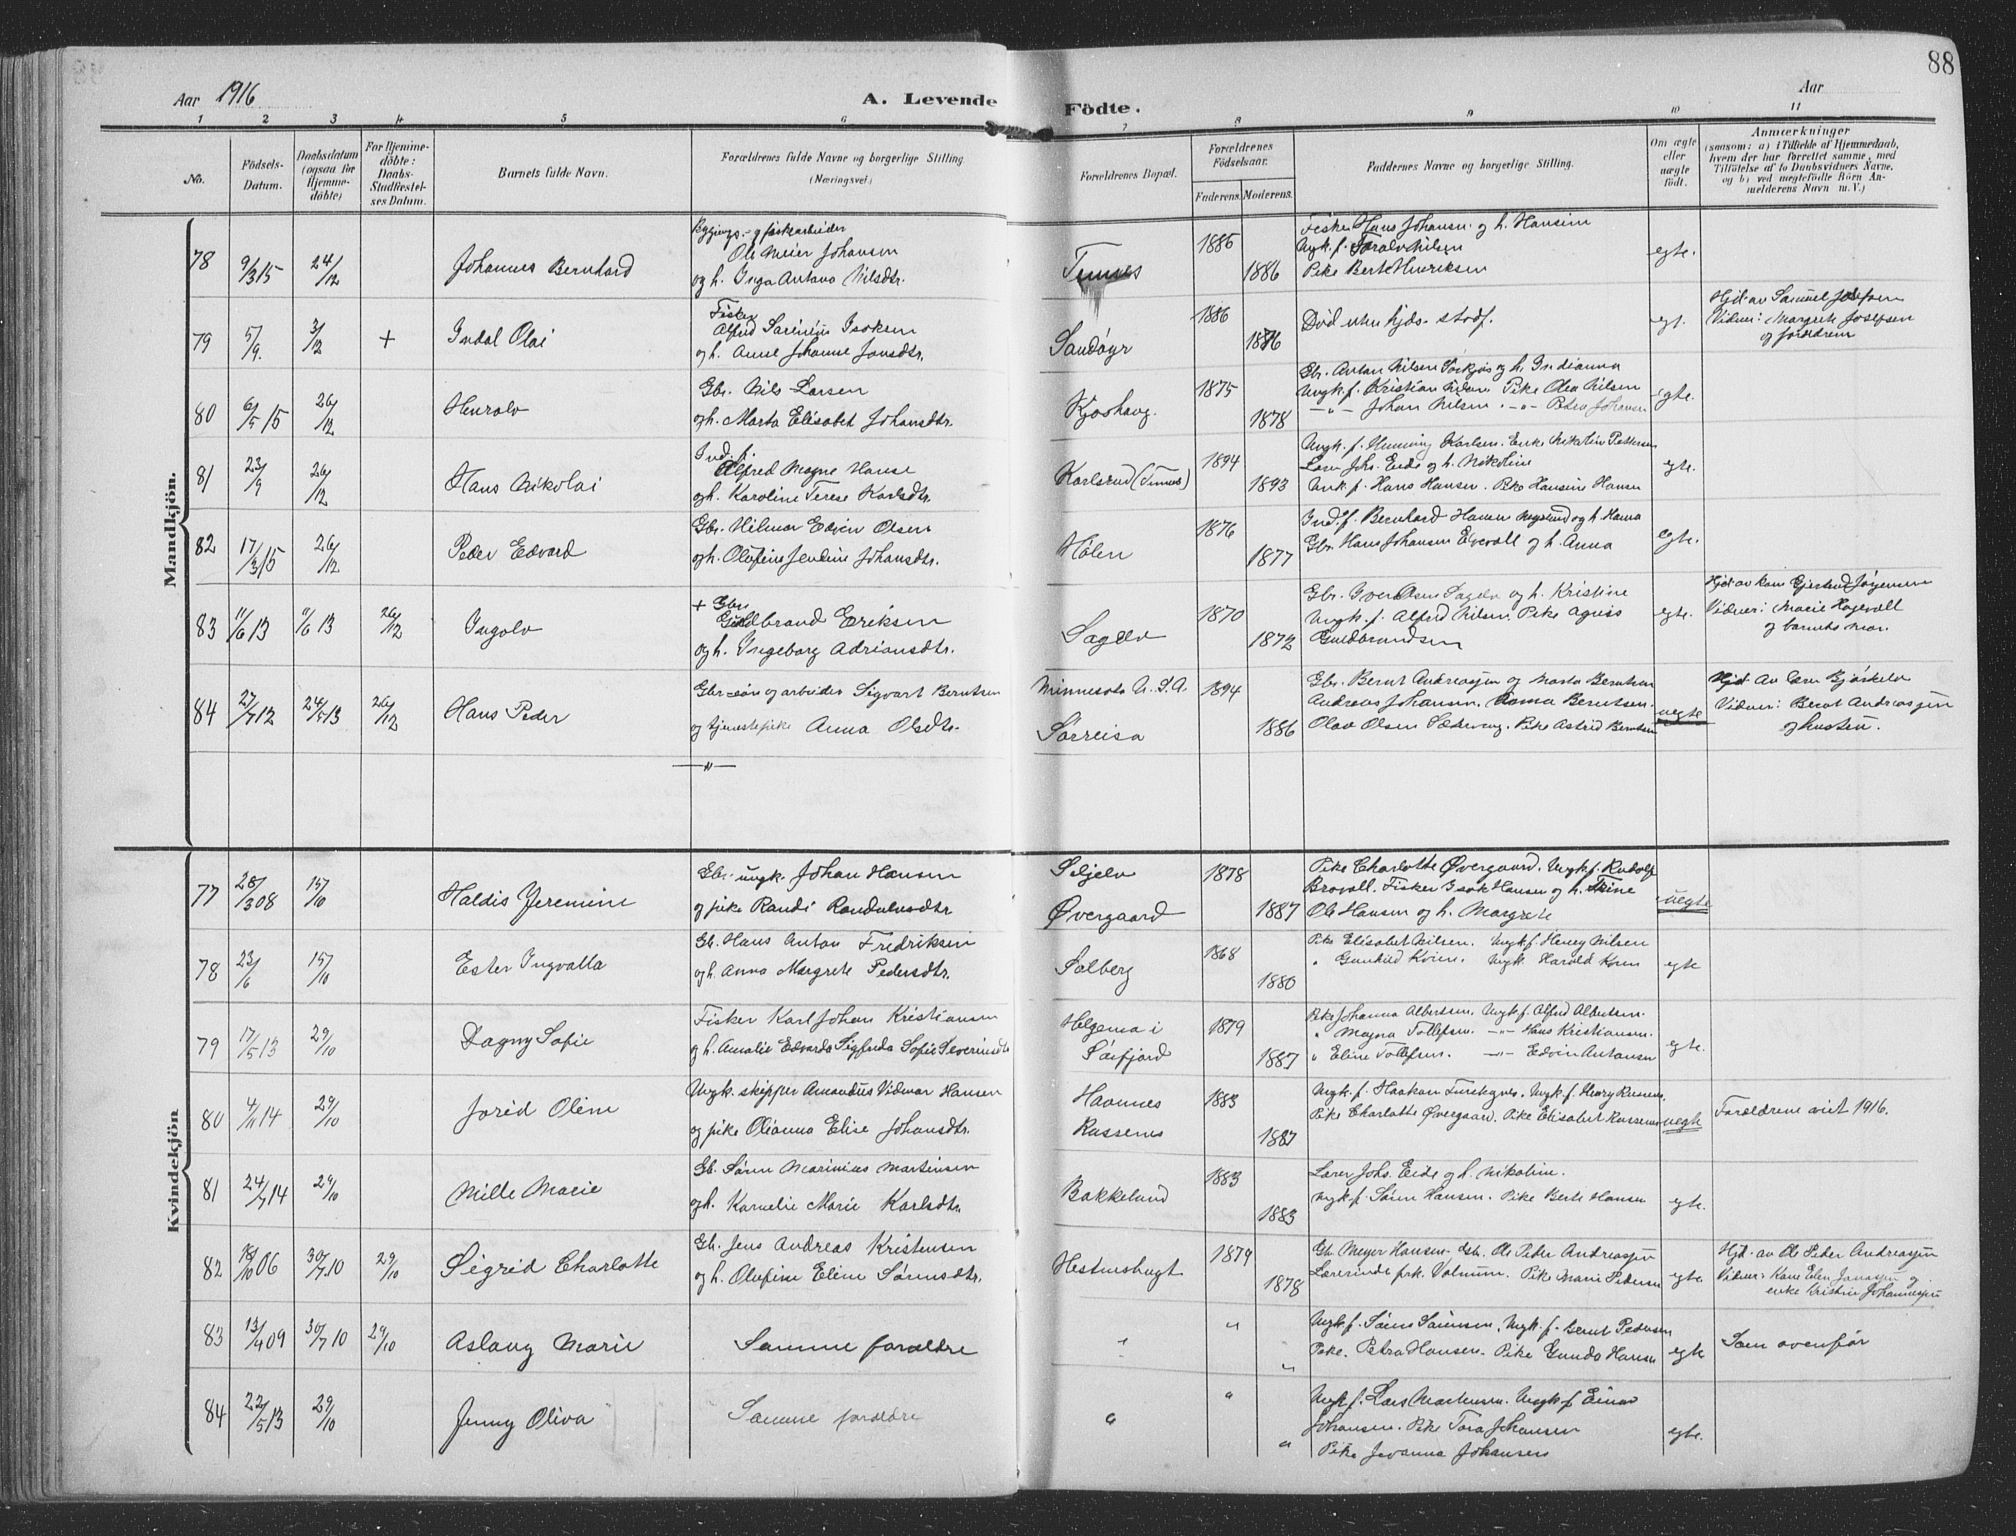 88
Aar 1916
A. Levende Födte.
Aar
1 2 3 4 5 6 7 8 9 10 11
No.
Födsels-Datum.
Daabsdatum (ogsaa for Hjemme-döbte)
For Hjemme-döbte: Daabs-Stadfæstel-ses Datum.
Barnets fulde Navn.
Forældrenes fulde Navne og borgerlige Stilling (Næringsvei)
Forældrenes Bopæl.
Forældrenes Födselsaar.
Faderens. Moderens.
Faddernes Navne og borgerlige Stilling.
Om ægte eller uægte födt.
Anmærkninger
(saasom: a) i Tilfælde af Hjemmedaab, hvem der har forrettet samme, med Tilföielse af to Daabsvidners Navne, og b) ved uegtefödte Börn Anmelderens Navn m. V.)
Mandkjön.
78 9/3 15 24/12 Johannes Bernhard
Ole Meier Johansen
og h. Inga Antona Nilsdtr.
1886 1886
Fisker Hans Johansen og h. Hansine
Ungk. f. Toralv Nilsen
Pike Berte Henriksen
egte.
79 5/9. 3/12 + Indal Olai
Fisker
Alfred Isaksen
og h. Anne Johanne Jonsdtr.
Sandøyr 1886
Død uten kjds. stadf.
egt.
Hjd. av Samuel Josefsen
Vidner: Margrete Josefsen
og forældrene
80 6/5 15 26/12
Gbr. Nils Larsen
og h. Marta Elisabet Johansdtr.
1875 1878
Gbr. Anton Nilsen og h. Indianna
Ungk. f. Kristian Nilsen Pike Olea Nilsen
— " — Johan Nilsen . — " — Petra Johansen
egte.
81 23/9 26/12 Hans Nikolai
Ind. f.
Alfred Magne Hansen
og h. Karoline Terese Karlsdtr.
Karlstad (Finnes) 1894 1893
Ungk. f. Henning Karlsen. Enke Nikoline Pettersen
Lærer Johs. Eide og h. Nikoline
Ungk. f. Hans Hansen. Pike Hansine Hansen
egte.
82 17/3 15 26/12 Peder Edvard
Gbr. Hilmar Edvin Olsen
og h. Olufine Jendine Johansdtr.
Hølen 1876 1877
Ind. f. Bernhard Hansen og h. Hanna
Gbr. Hans Johansen Elvevoll og h. Anna
egte.
83 11/6 13 11/6 13 26/12 Ingolv
+ Gbr.
Guldbrand Eriksen
og h. Ingeborg Adriansdtr.
Sagelv 1870 1872
Gbr. Iver Olsen Sagelv og h. Kristine
Ungk. f. Alfred Nilsen. Pike Agnes
Guldbrandsen
egte.
Hjd. av kone Gjertrud Jørgensen
Vidner: Marie Hagevoll
og barnets mor.
84 27/7 12 24/5 13 26/12 Hans Peder
Gbr-søn og arbeider Sigvart Berntsen
og tjenestepike Anna Olsdtr.
Minnesota U.S.A. 1894
Sørreisa 1886
Gbr. Bernt Andreassen og Marta Berntsen
Andreas Johansen. Anna Berntsen
Olav Olsen . Pike Astrid Berntsen
uegte
Hjd. av Bjørkelv
Vidner: Bernt Andreassen
og hustru.
— " —
Kvindekjön
77 28/3 08 15/10 Haldis Jeremine
Gbr. ungk. Johan Hansen
og pike Randi Randulvsdtr
Seljelv
Øvergaard 1878 1887
Pike Charlotte Øvergaard. Ungk. f. Rudolf
Brovoll. Fisker Isak Hansen og h. Trine
Ole Hansen og h. Margrete
uegte
78 23/6 15/10 Ester Ingvalla
Gb. Hans Anton Fredriksen
og h. Anna Margrete Pedersdtr.
Solberg 1868 1880
Pike Elisabet Nilsen. Ungk. f. Henry Nilsen
" Gunhild Kvien. Ungk. Harald Koren
egte
79 17/5 13 29/10 Dagny Sofie
Fisker Karl Johan Kristiansen
og h. Amalie Edvarda Sigfrida Sofie Severinsdtr
Helgenia i
Sørfjord 1879 1887
Pike Johanna Albertsen. Ungk. f. Alfred Albertsen.
" Magna Tollefsen. — " — Hans Kristiansen.
" Eline Tollefsen. — " — Edvin Antonsen
egte.
80 4/11 14 29/10 Jorid Oline
Ungk. skipper Amandus Vidmar Hansen
og pike Olianna Elise Johansdtr.
Havnnes
Russenes 1883 1887
Ungk. f. Haakon . Ungk. f. Henry
Pike Charlotte Øvergaard. Pike Elisabet Russenes
uegte
Forældrene viet 1916.
81 24/7 14 29/10 Mille Marie
Gb. Søren Marinius Martinsen
og h. Kornelie Marie Karlsdtr.
Bakkeland 1883 1883
Lærer Johs. Eide og h. Nikoline.
Ungk. f. Søren Hansen. Pike Berte Hansen
egte.
82 18/10 06 30/7 10 29/10 Sigrid Charlotte
Gb. Jens Andreas Kristensen
og h. Olufine Eline Sørensdtr.
Hestnesbugt 1879 1878
Gb. Meyer Hansen. Gb. Ole Peder Andreassen
Lærerinde frk. . Pike Marie Pedersen
egte
Hjd. av Ole Peder Andreassen
Vidner: Kone Elen Jonassen og
enke Kristine Johannessen
83 13/9 09 30/7 10 29/10 Aslaug Marie
Samme forældre
" " "
Ungk. f. Søren Sørensen. Ungk. f. Bernt Pedersen
Pike. Petra Hansen. Pike Gunda Hansen
egte
Som ovenfor
84 22/5 13 29/10 Jenny Oliva
Samme forældre
" " "
Ungk. f. Lars Martensen. Ungk. f. Einar
Johansen. Pike Tora Johansen
Pike Jovanna Johansen
egte.